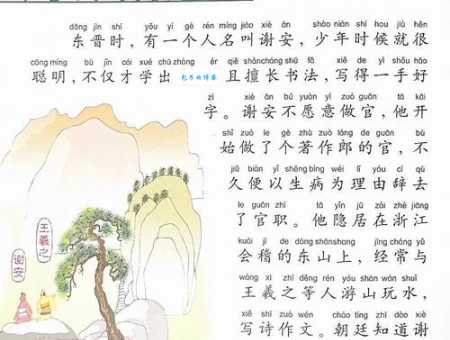 dōng jìn shí yǒu yí gè rén míng jiào xiè ān shào nián shí hou jiù hěn
东晋时，有一个人名叫谢安，少年时候就很
cōng míng bù jǐn cái xué chū zhòng ér qiě shàn cháng shū fǎ xiě de yì shǒu hǎo
聪明，不仅才学出 且擅长书法，写得一手好
zì xiè ān bú yuàn yì zuò guān tā kāi
字。谢安不愿意做官，他开
shǐ zuò le gè zhù zuò láng de guān bù
始做了个著作郎的官，不
jiǔ biàn yǐ shēng bìng wéi lǐ yóu cí qù
久便以生病为理由辞去
le guān zhí tā yǐn jū zài zhè jiāng
了官职。他隐居在浙江
kuài jī de dōng shān shang jīng cháng yǔ
会稽的东山上，经常与
wáng xī zhī děng rén yóu shān wán shuǐ
王羲之等人游山玩水，
xiě shī zuò wén cháo tíng zhī dào xiè
写诗作文。朝廷知道谢
王羲之
谢安